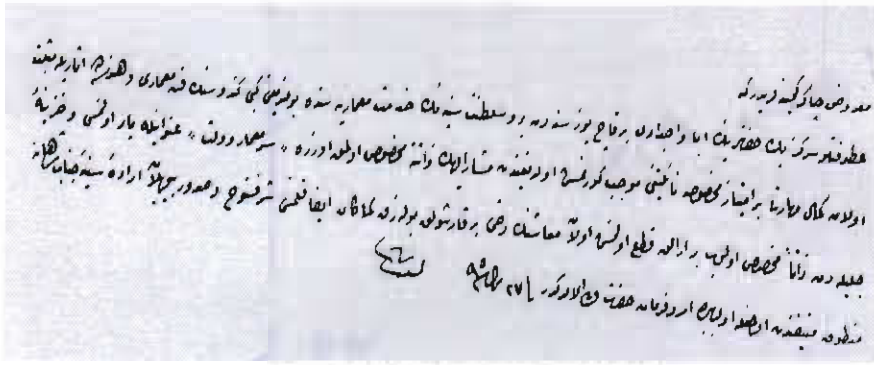 معروض چاکر کمینه‌لریدر که
عطوفتلو سرکیز بك حضرتلرینك ابا واجدادی بر قاچ یوز سنه‌دن برو سلطنت سنیه‌نك خدمت معماریه‌سنده بولندیغی کبی کندوسنك فن معماری وهنرجه اثاریله مثبت
اولان کمال مهارتی بر امتیاز مخصوصه نائلیتنی موجب کورنمش اولدیغندن مشارالیهك ذاتنه مخصوص اولمق اوزره « سرمعمار دولت » عنوانیله یاد اولنمسی وخزینهٔ
جلیله‌دن ذاتاً مخصص اولوب بر ارالق قطع اولنمش اولان معاشنك دخی بر قارشولق بولنه‌رق کماکان ایفا قلنمسی شرفسنوح وصدور بیوریلان ارادهٔ سنیهٔ جناب شاهانه
منطوق منیفندن اولمغله اولبابده امر وفرمان حضرت ولی الامرکدر ٢٧